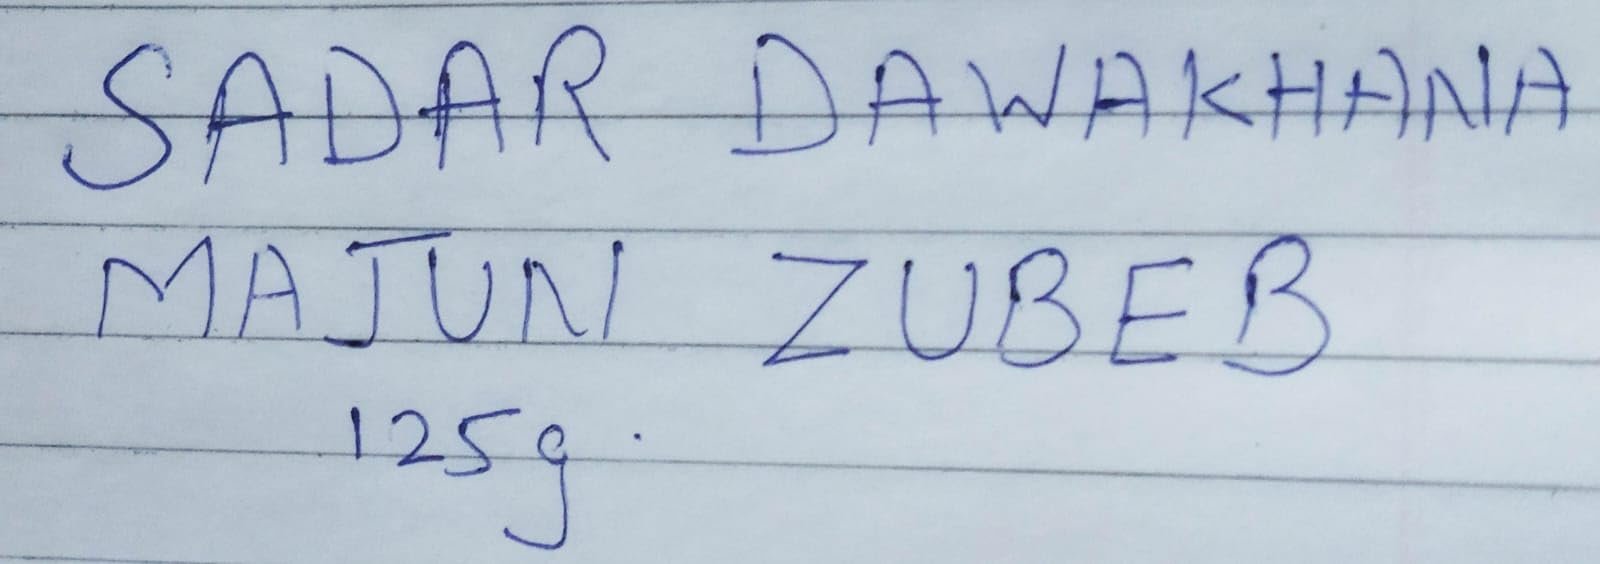 SADAR DAWAKHANA
MAJUN ZUBEB
125g.